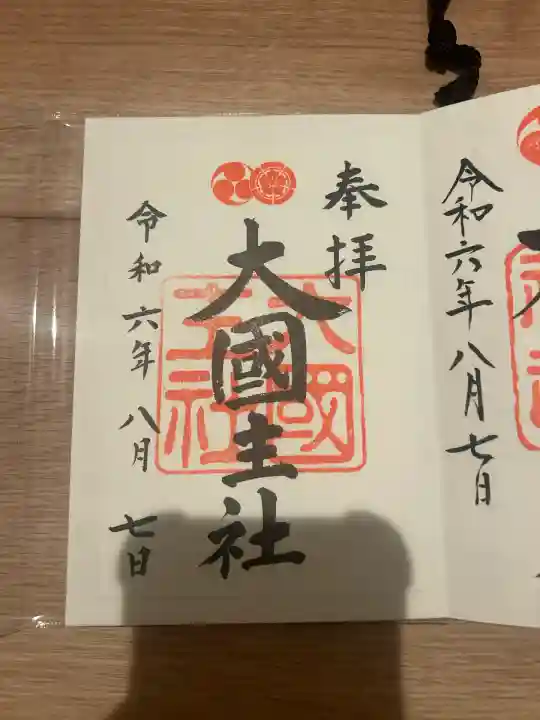 奉拝
大國主社
大國主社
令和六年八月七日
令和六年八月七日